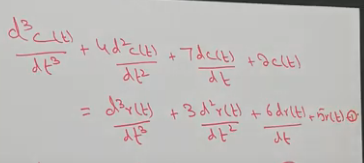 d³c(t)/dt³ + 4d²c(t)/dt² + 7dc(t)/dt + 2c(t)
= d³r(t)/dt³ + 3d²r(t)/dt² + 6dr(t)/dt + 5r(t) ①